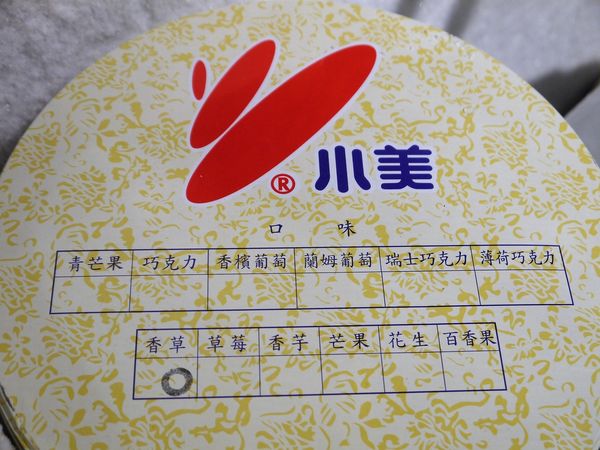 ® 小美
口 味
青芒果 巧克力 香檳葡萄 蘭姆葡萄 瑞士巧克力 薄荷巧克力
香草 草莓 香芋 芒果 花生 百香果